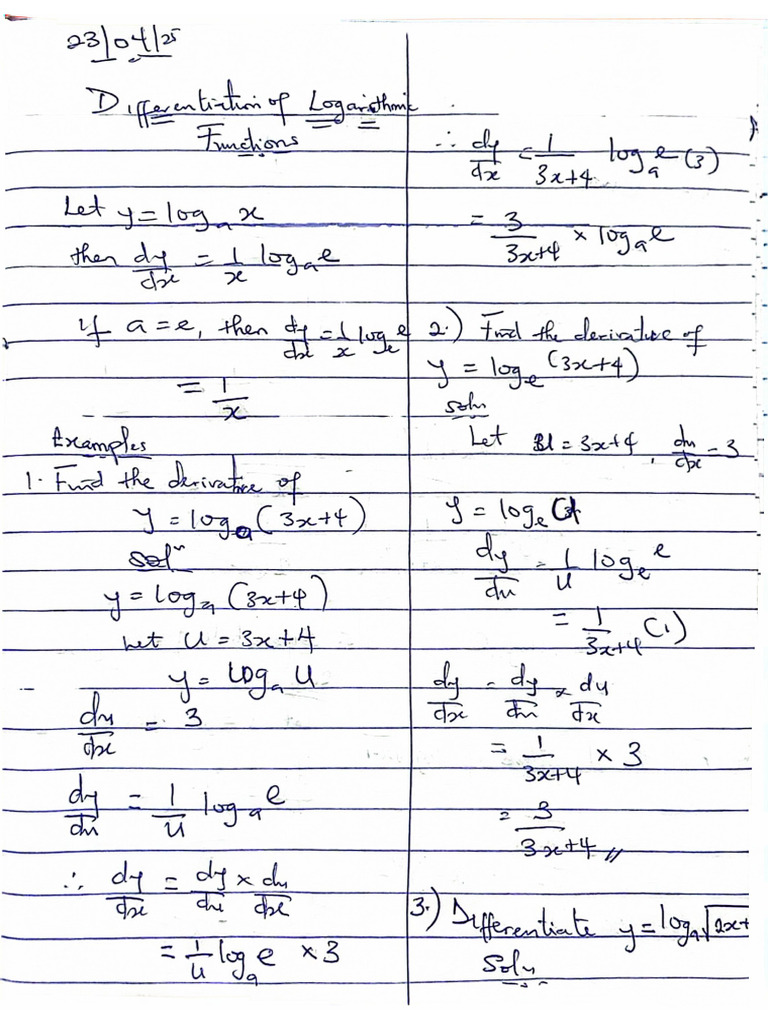 23/04/25
Differentiation of Logarithmic
Functions
Let y = logₐ x
then dy/dx = 1/x logₐ e
if a = e, then dy/dx = 1/x logₑ e
= 1/x
Examples
1. Find the derivative of
y = logₐ (3x+4)
solⁿ
y = logₐ (3x+4)
Let U = 3x+4
y = logₐ U
du/dx = 3
dy/du = 1/U logₐ e
∴ dy/dx = dy/du × du/dx
= 1/U logₐ e × 3
∴ dy/dx = 1/3x+4 logₐ e (3)
= 3/3x+4 × logₐ e
2.) Find the derivative of
y = logₑ (3x+4)
soln
Let U = 3x+4, du/dx = 3
y = logₑ
dy/du = 1/U logₑ e
= 1/3x+4 (1)
dy/dx = dy/du × du/dx
= 1/3x+4 × 3
= 3/3x+4 //
3.) Differentiate y = logₐ √2x+
Soln